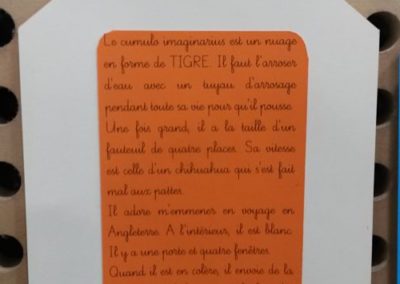 Le cumulo imaginarius est un nuage
en forme de TIGRE. Il faut l'arroser
d'eau avec un tuyau d'arrosage
pendant toute sa vie pour qu'il pousse.
Une fois grand, il a la taille d'un
fauteuil de quatre places. Sa vitesse
est celle d'un chihuahua qui s'est fait
mal aux pattes.
Il adore m'emmener en voyage en
Angleterre. A l'intérieur, il est blanc.
Il y a une porte et quatre fenêtres.
Quand il est en colère, il envoie de la